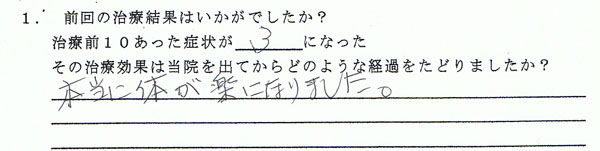 1． 前回の治療結果はいかがでしたか？
治療前１０あった症状が 3 になった
その治療効果は当院を出てからどのような経過をたどりましたか？
本当に体が楽になりました。